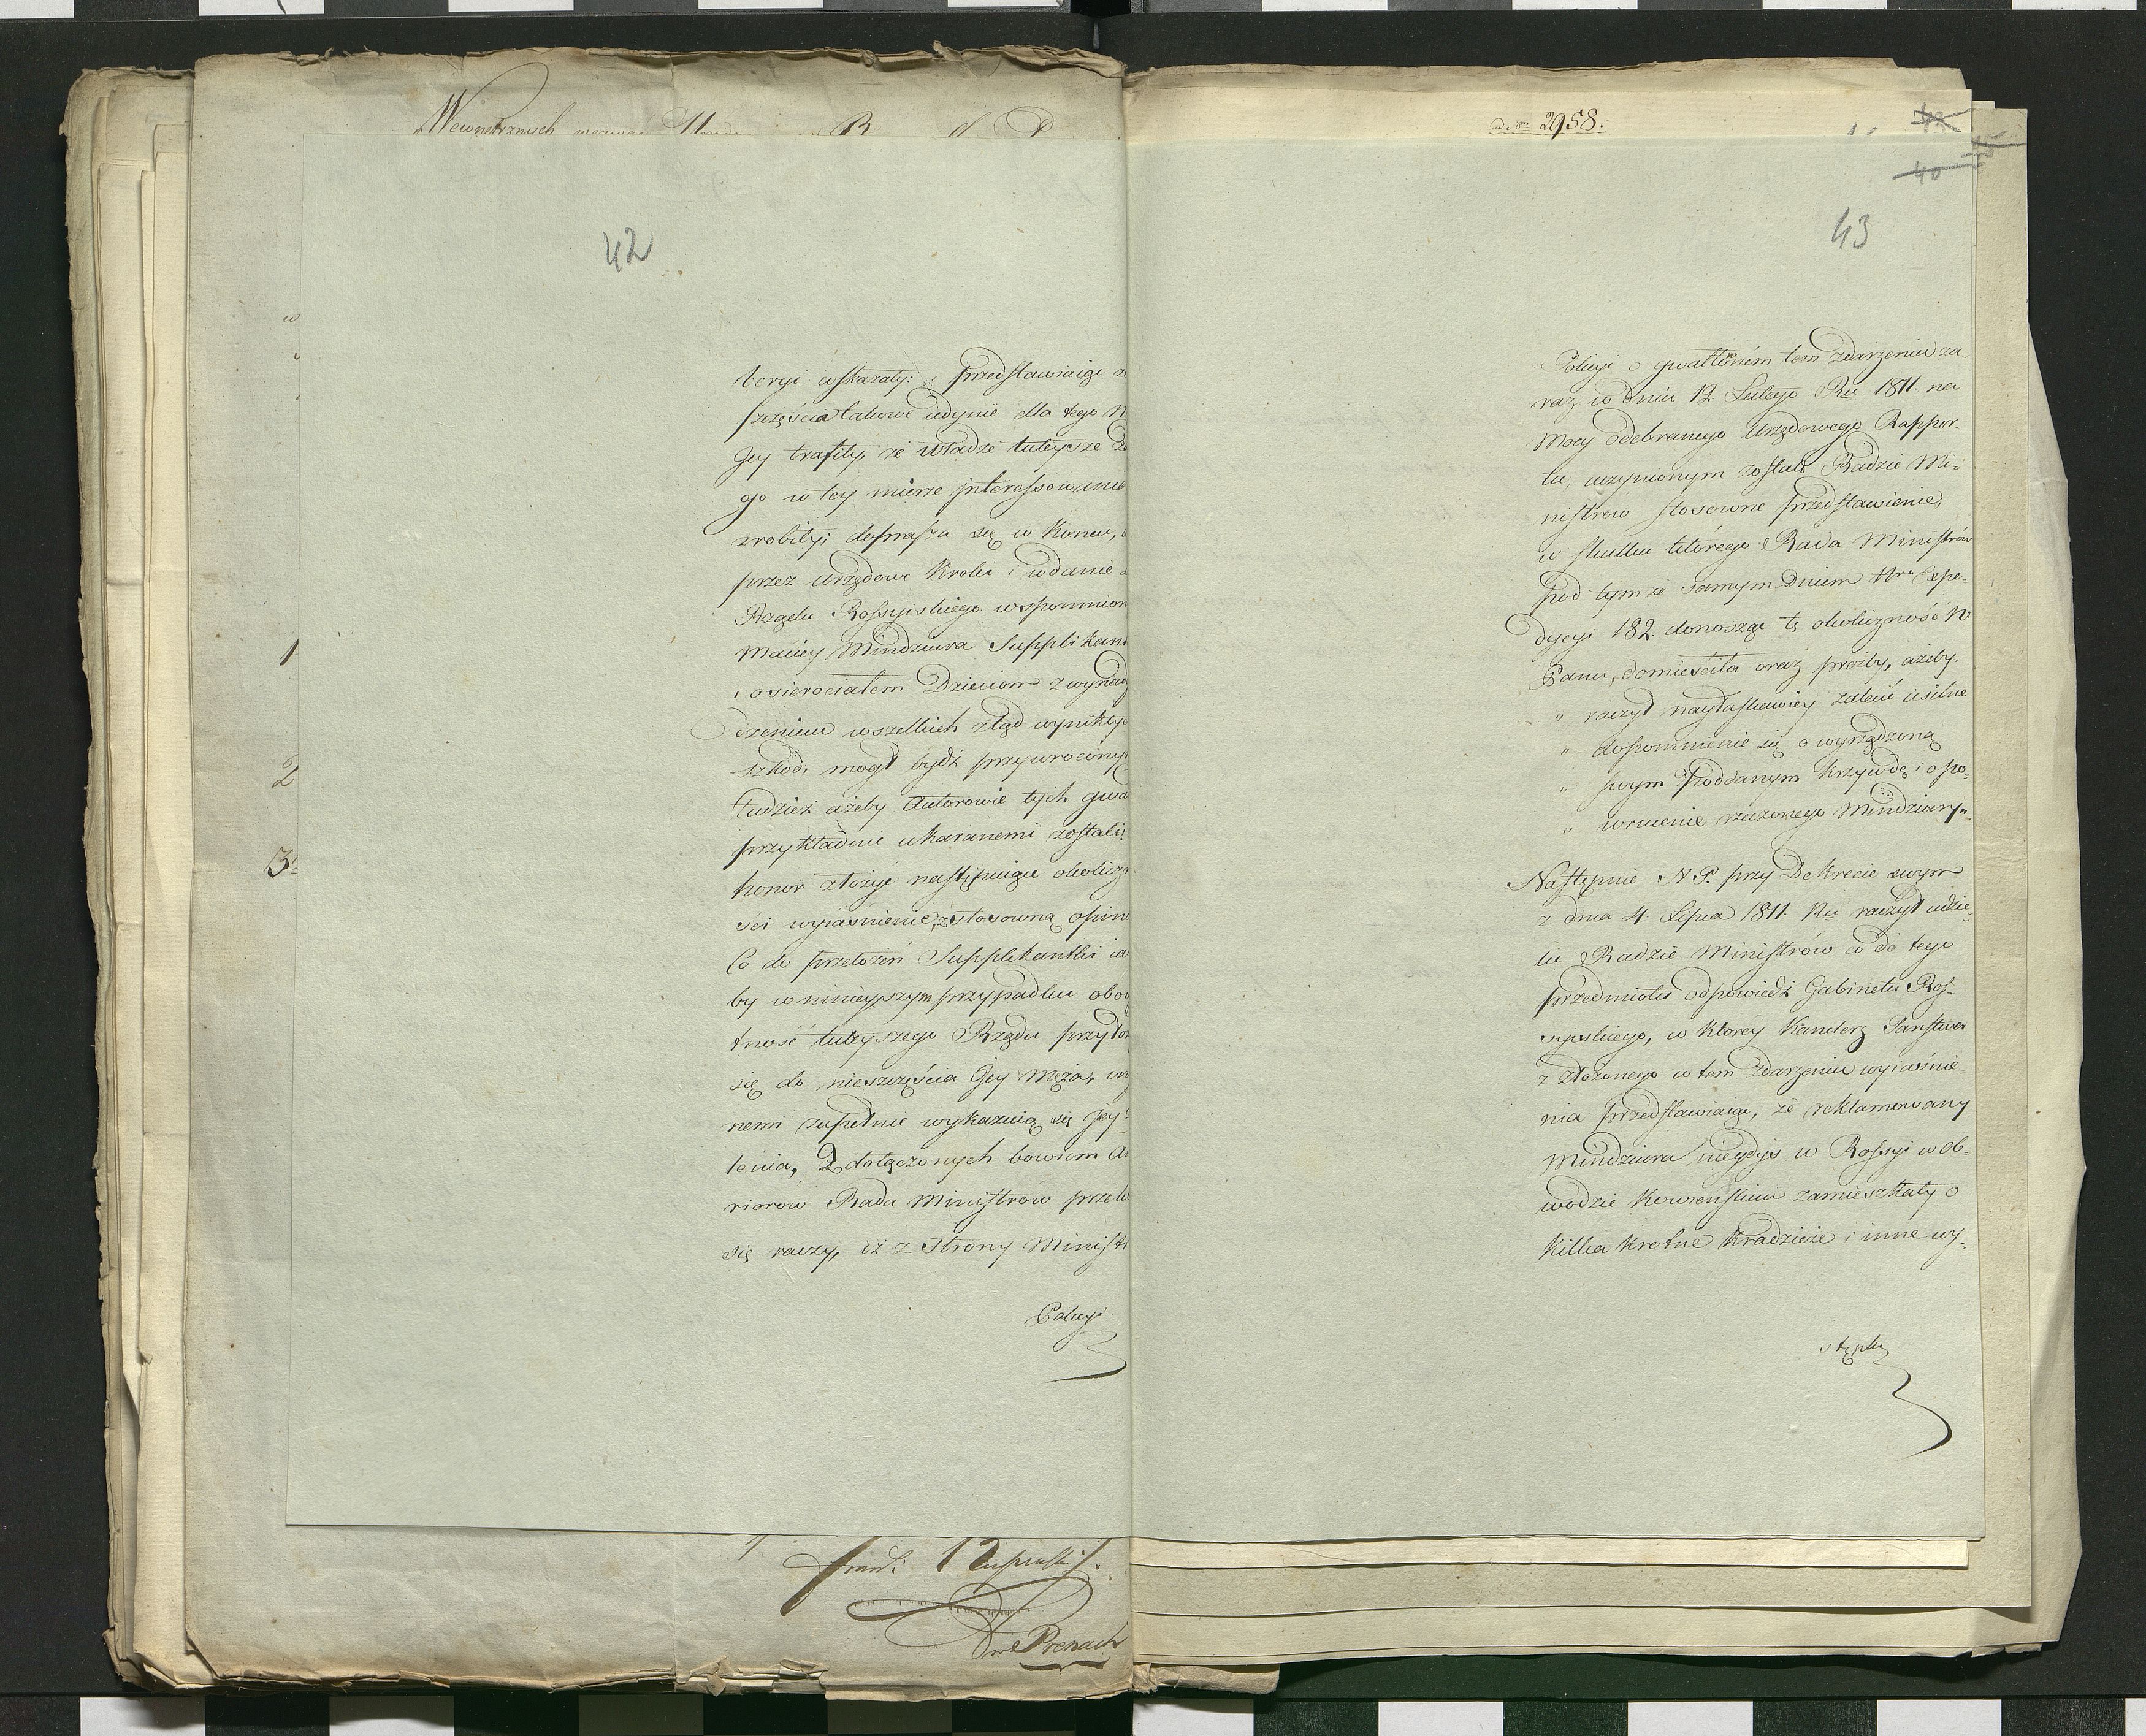 Wewnetrznych
42
teryi wskazały: przedstawiaiąc
szczęścia takowe iedynie dla tego
Jey trafiły, że Władze tuteysze
go w tey mierze interessowania
zrobiły; dopraſza się w Koncu,
przez urzędowe Kroki i wdanie
Rządu Roſsyiskiego wspomnion
Maciey Mindziura Supplikant
i osierociałem Dzieciom z wynad
dzeniem wszelkich ztąd wynikły
szkód, mogł bydź przywrócony
tudzież ażeby Autorowie tych gwa
przykładnie ukaranemi zostali;
honor złożyć następuiące okolicz
ści wyiaśnienie, z stosowną opini
Co do przełożeń Supplikantki ia
by w ninieyszym przypadku obo
tność tuteyszego Rządu przyło
się do nieszczęścia Jey Męża, 
nemi zupełnie wykazuią się Jey
lenia, Z dołączonych bowiem
riorów Rada Ministrow przeko
się raczy, iż z Strony Minist
Policyi
1
2
3
w Prenach
2958.
42
40
43
Policyi o gwałtowném tem zdarzeniu za-
raz w dniu 12 Lutego Ru 1811. na
Mocy odebranego Urzędowego Rappor-
tu, uczynionym zostało Radzie Mi-
nistrów stosowne przedstawienie,
w skutku którego Rada Ministrów
pod tymże samym Dniem Nro Expe-
dycyi 182. donosząc tę okoliczność N.
Panu, domieściła oraz prożby, ażeby.
„ raczył nayłaskawiey zalecić usilne
„ dopomnienie się o wyrządzoną
„ swym Poddanym krzywdę i o po-
„ wrucenie rzeczonego Mindziury„
Następnie N. P. przy Dekrecie swym
z dnia 4 Lipca 1811. Ru raczył udzie-
lić Radzie Ministrów co do tego
przedmiotu odpowiedź Gabinetu Roſ-
syiskiego, w ktorey Kanclerz Państwa
z złożonego w tem zdarzeniu wyiaśnie-
nia przedstawiaiąc, że reklamowany
Mindziura niegdyś w Roſsyi w Ob-
wodzie Kowieńskim zamieszkały o
kilka krotne kradzieże i inne wy-
stępki